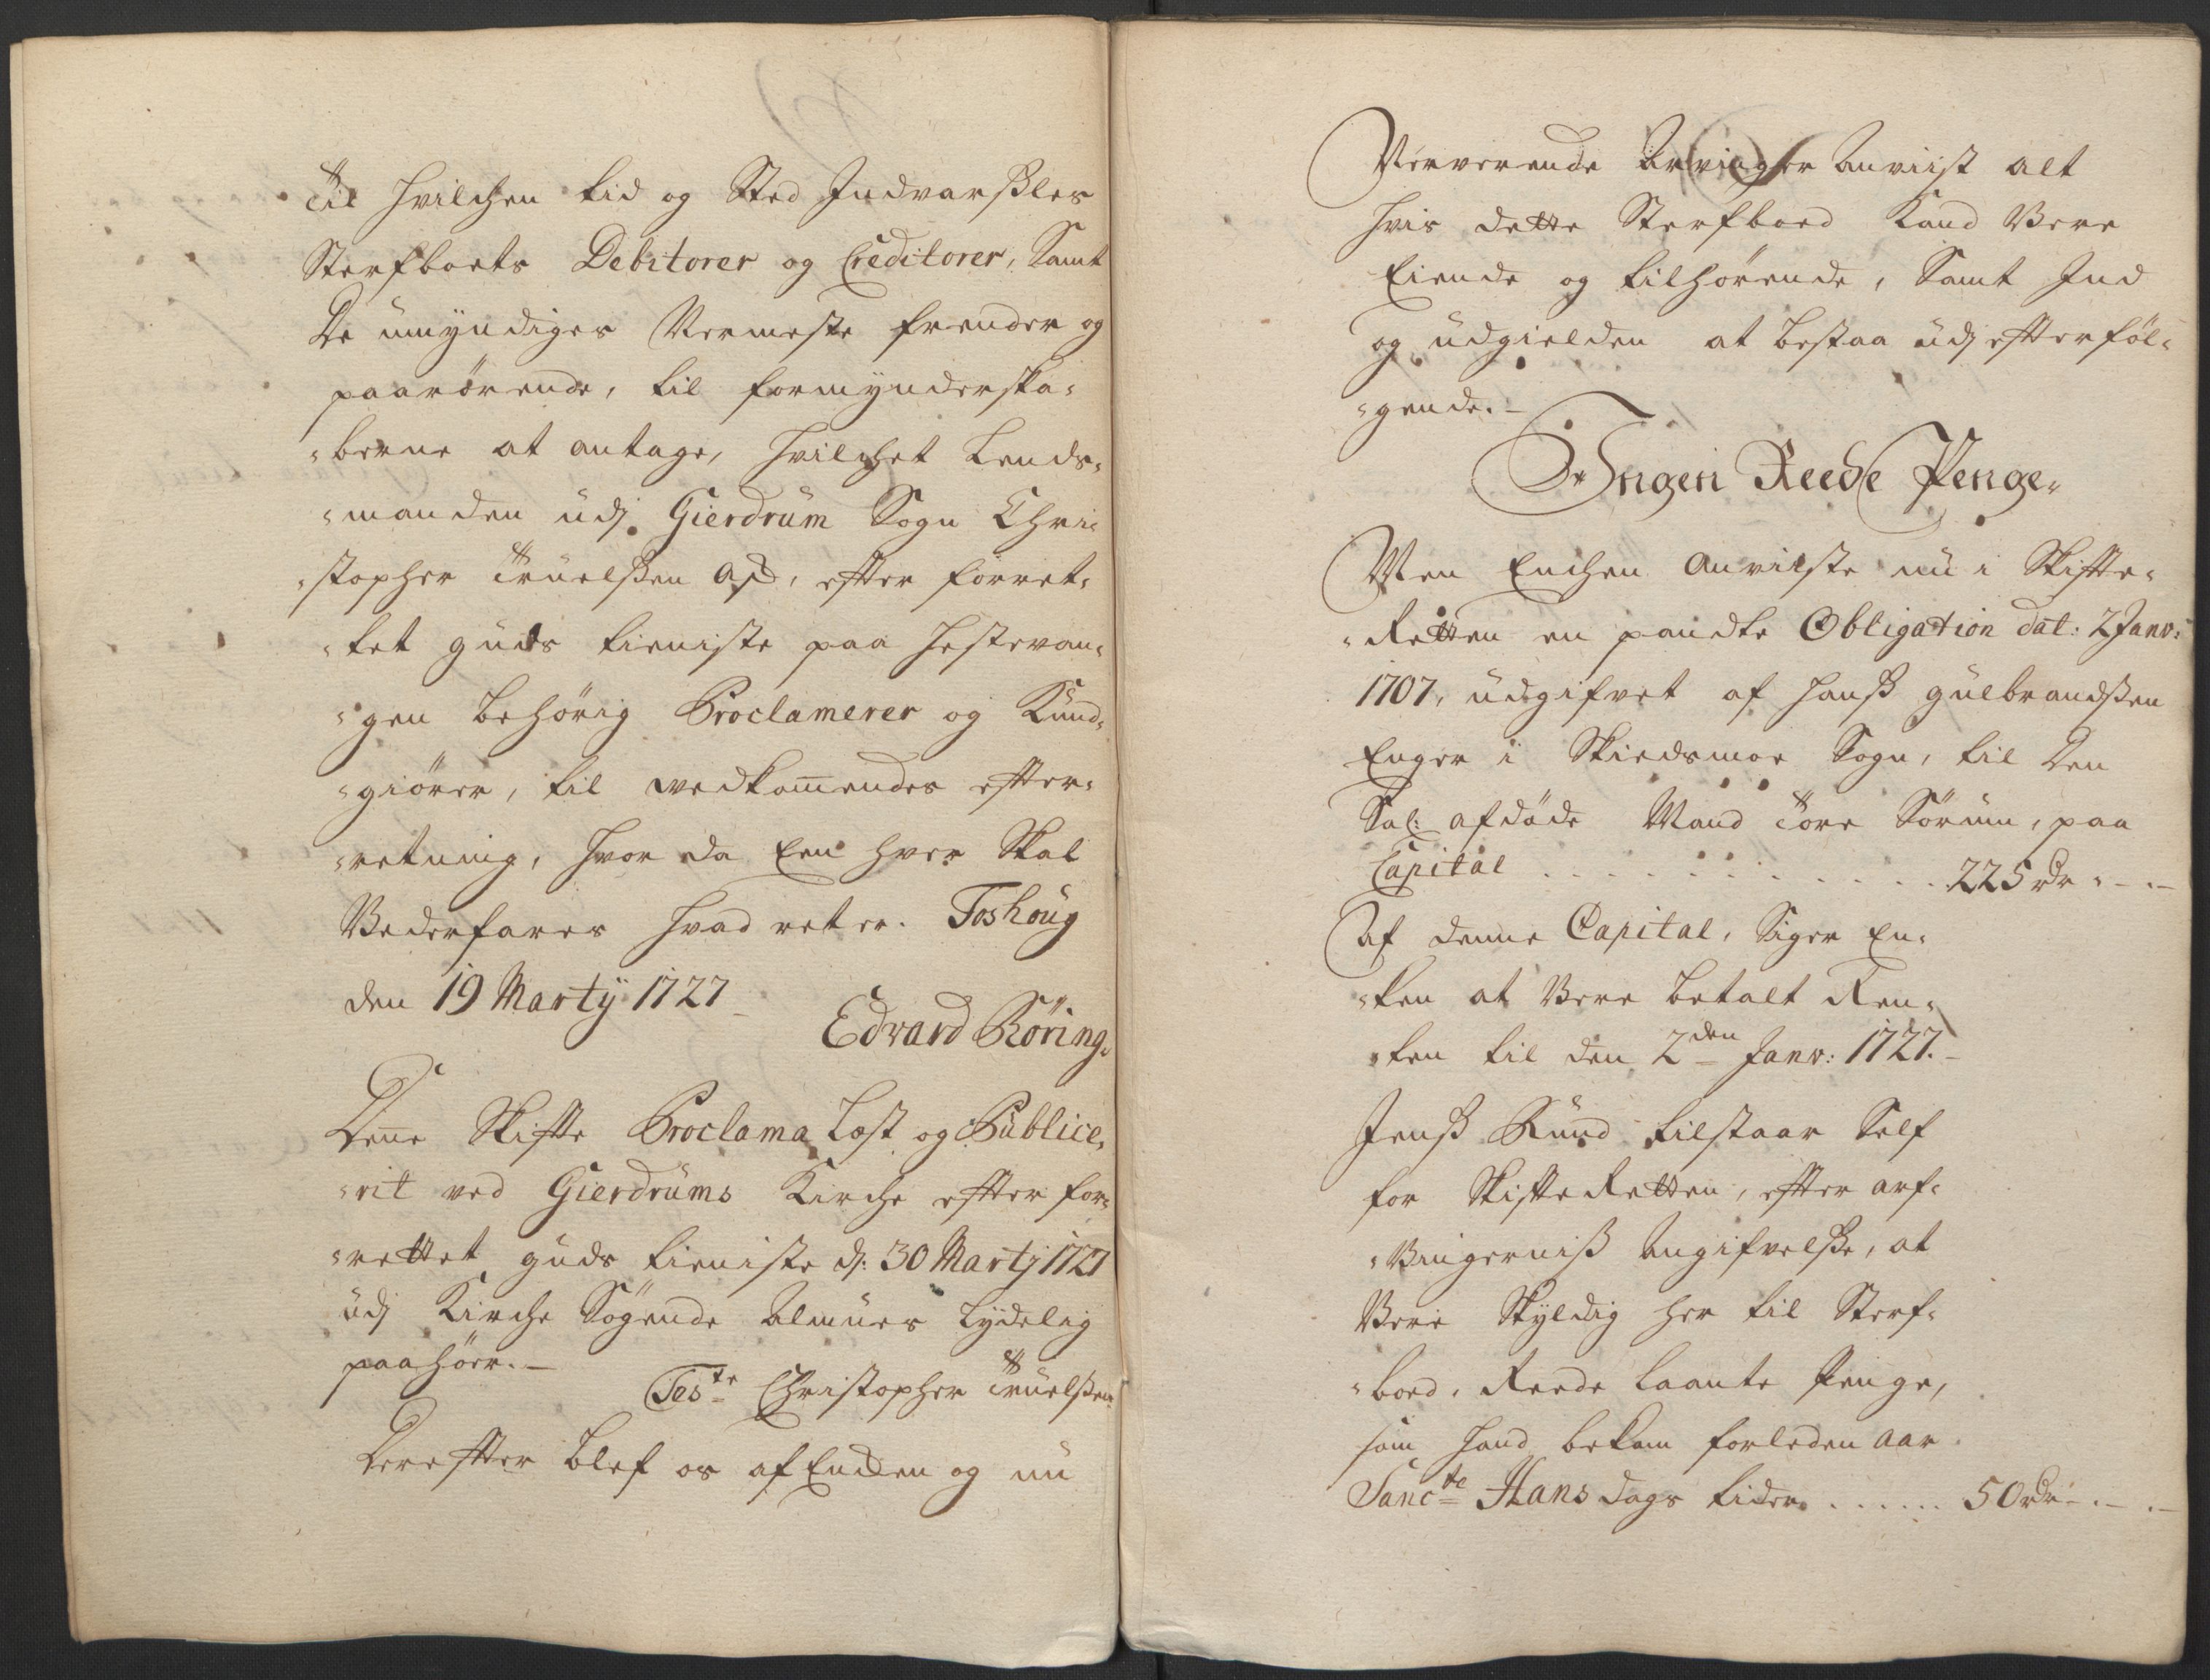 Til hvilchen tid og Sted Indvarßles
Sterfboets Debitorer og Creditorer, Samt
De umÿndiges Nermeste frender og
paarörende, til formÿnderska-
-berne at antage, hvilchet Lends-
-manden udj Gierdrum Sogn Chri-
-stopher Truelßen A/S, efter forret-
-tet guds tieniste paa hestevan-
-gen behörig Proclamerer og Kund-
-giörer, til vedkommendes efter-
-retning, hvor da Een hver Skal
Vederfares hvad ret er. Foshoug
den 19 Martÿ 1727
Edvard Röring.
Denne Skifte Proclama Læst og Publice-
-rit ved Gierdrums Kirche efter for-
-rettet guds tieniste d: 30 Martj 1727
udj Kirche Sögende Almues Lÿdelig
paahör.-
Teste Christopher Truelßen
Derefter blef os af Enchen og nu
Nerverende Arvinger Anviist alt
hvis dette Sterfboed Kand Vere
Eiende og tilhörende, Samt Ind
og udgielden at bestaa udj efterföl-
-gende.-
Ingen Reede Penge.
Men Enchen Anviiste nu i Skifte-
-Retten en pandte Obligation dat: 2 Janv:
1707, udgifvet af hanß gulbrandßen
Enger i Skiedsmoe Sogn, til Den
Sal: afdöde Mand Tore Sörum, paa
Capital . . . . . . . . . . . 225 rdr - . -
Af denne Capital, Siger En-
-ken at Vere betalt Ren-
-ten til den 2den Janv: 1727.-
Jenß Rund tilstaar Self
for Skifte Retten, efter arf-
-Vingerniß Angifvelße, at
Vere Skÿldig her til Sterf-
-boed, Reede laante Penge,
som hand bekom forleden Aar
Sancte Hans dags tider . . . . . . 50 rdr - . - . -